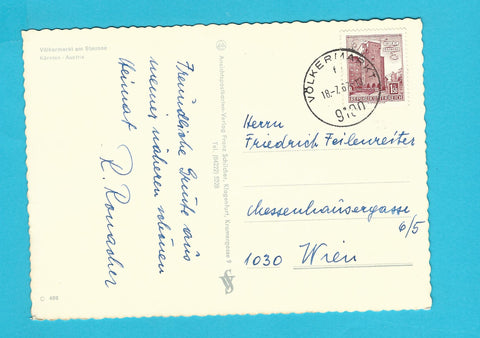 Völkermarkt am Stausee
Kärnten - Austria
Freundliche Grüße aus
meiner näheren schönen
Heimat
R. Ronacher
Ansichtspostkarten-Verlag Franz Schilcher, Klagenfurt, Kramergasse 9
Tel. (04222) 5728
VÖLKERMARKT
1
18-7.67-
9100
REPUBLIK ÖSTERREICH
Herrn
Friedrich Feilenreiter
Messenhausergasse
6/5
1030 Wien
C 469